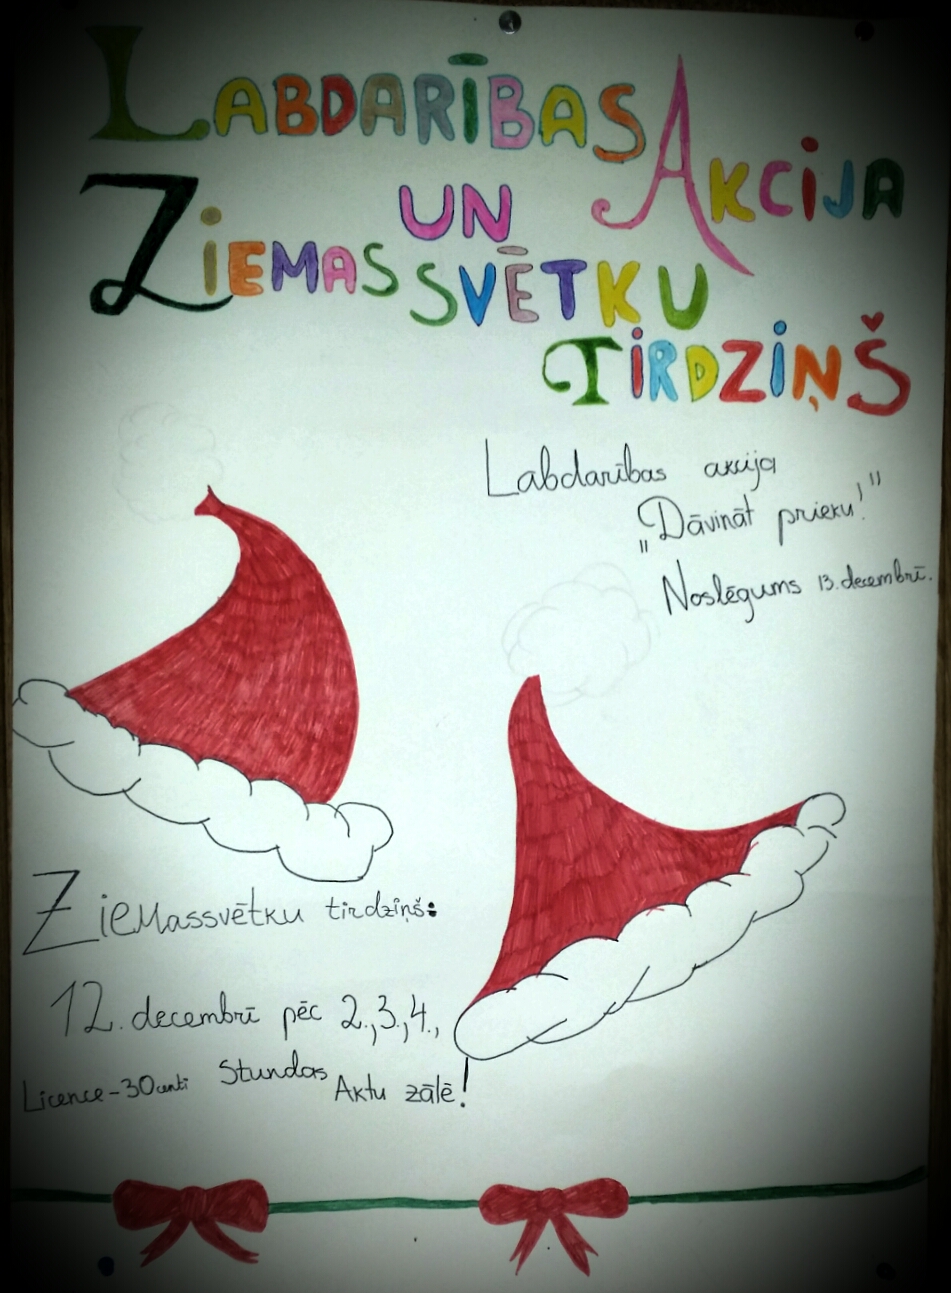 LABDARĪBAS AKCIJA
UN
ZIEMASSVĒTKU
TIRDZIŅŠ
Labdarības akcija
„Dāvināt prieku!"
Noslēgums 13.decembrī.
Ziemassvētku tirdziņš:
12. decembrī pēc 2.,3.,4.,
Licence-30centi Stundas Aktu zālē!